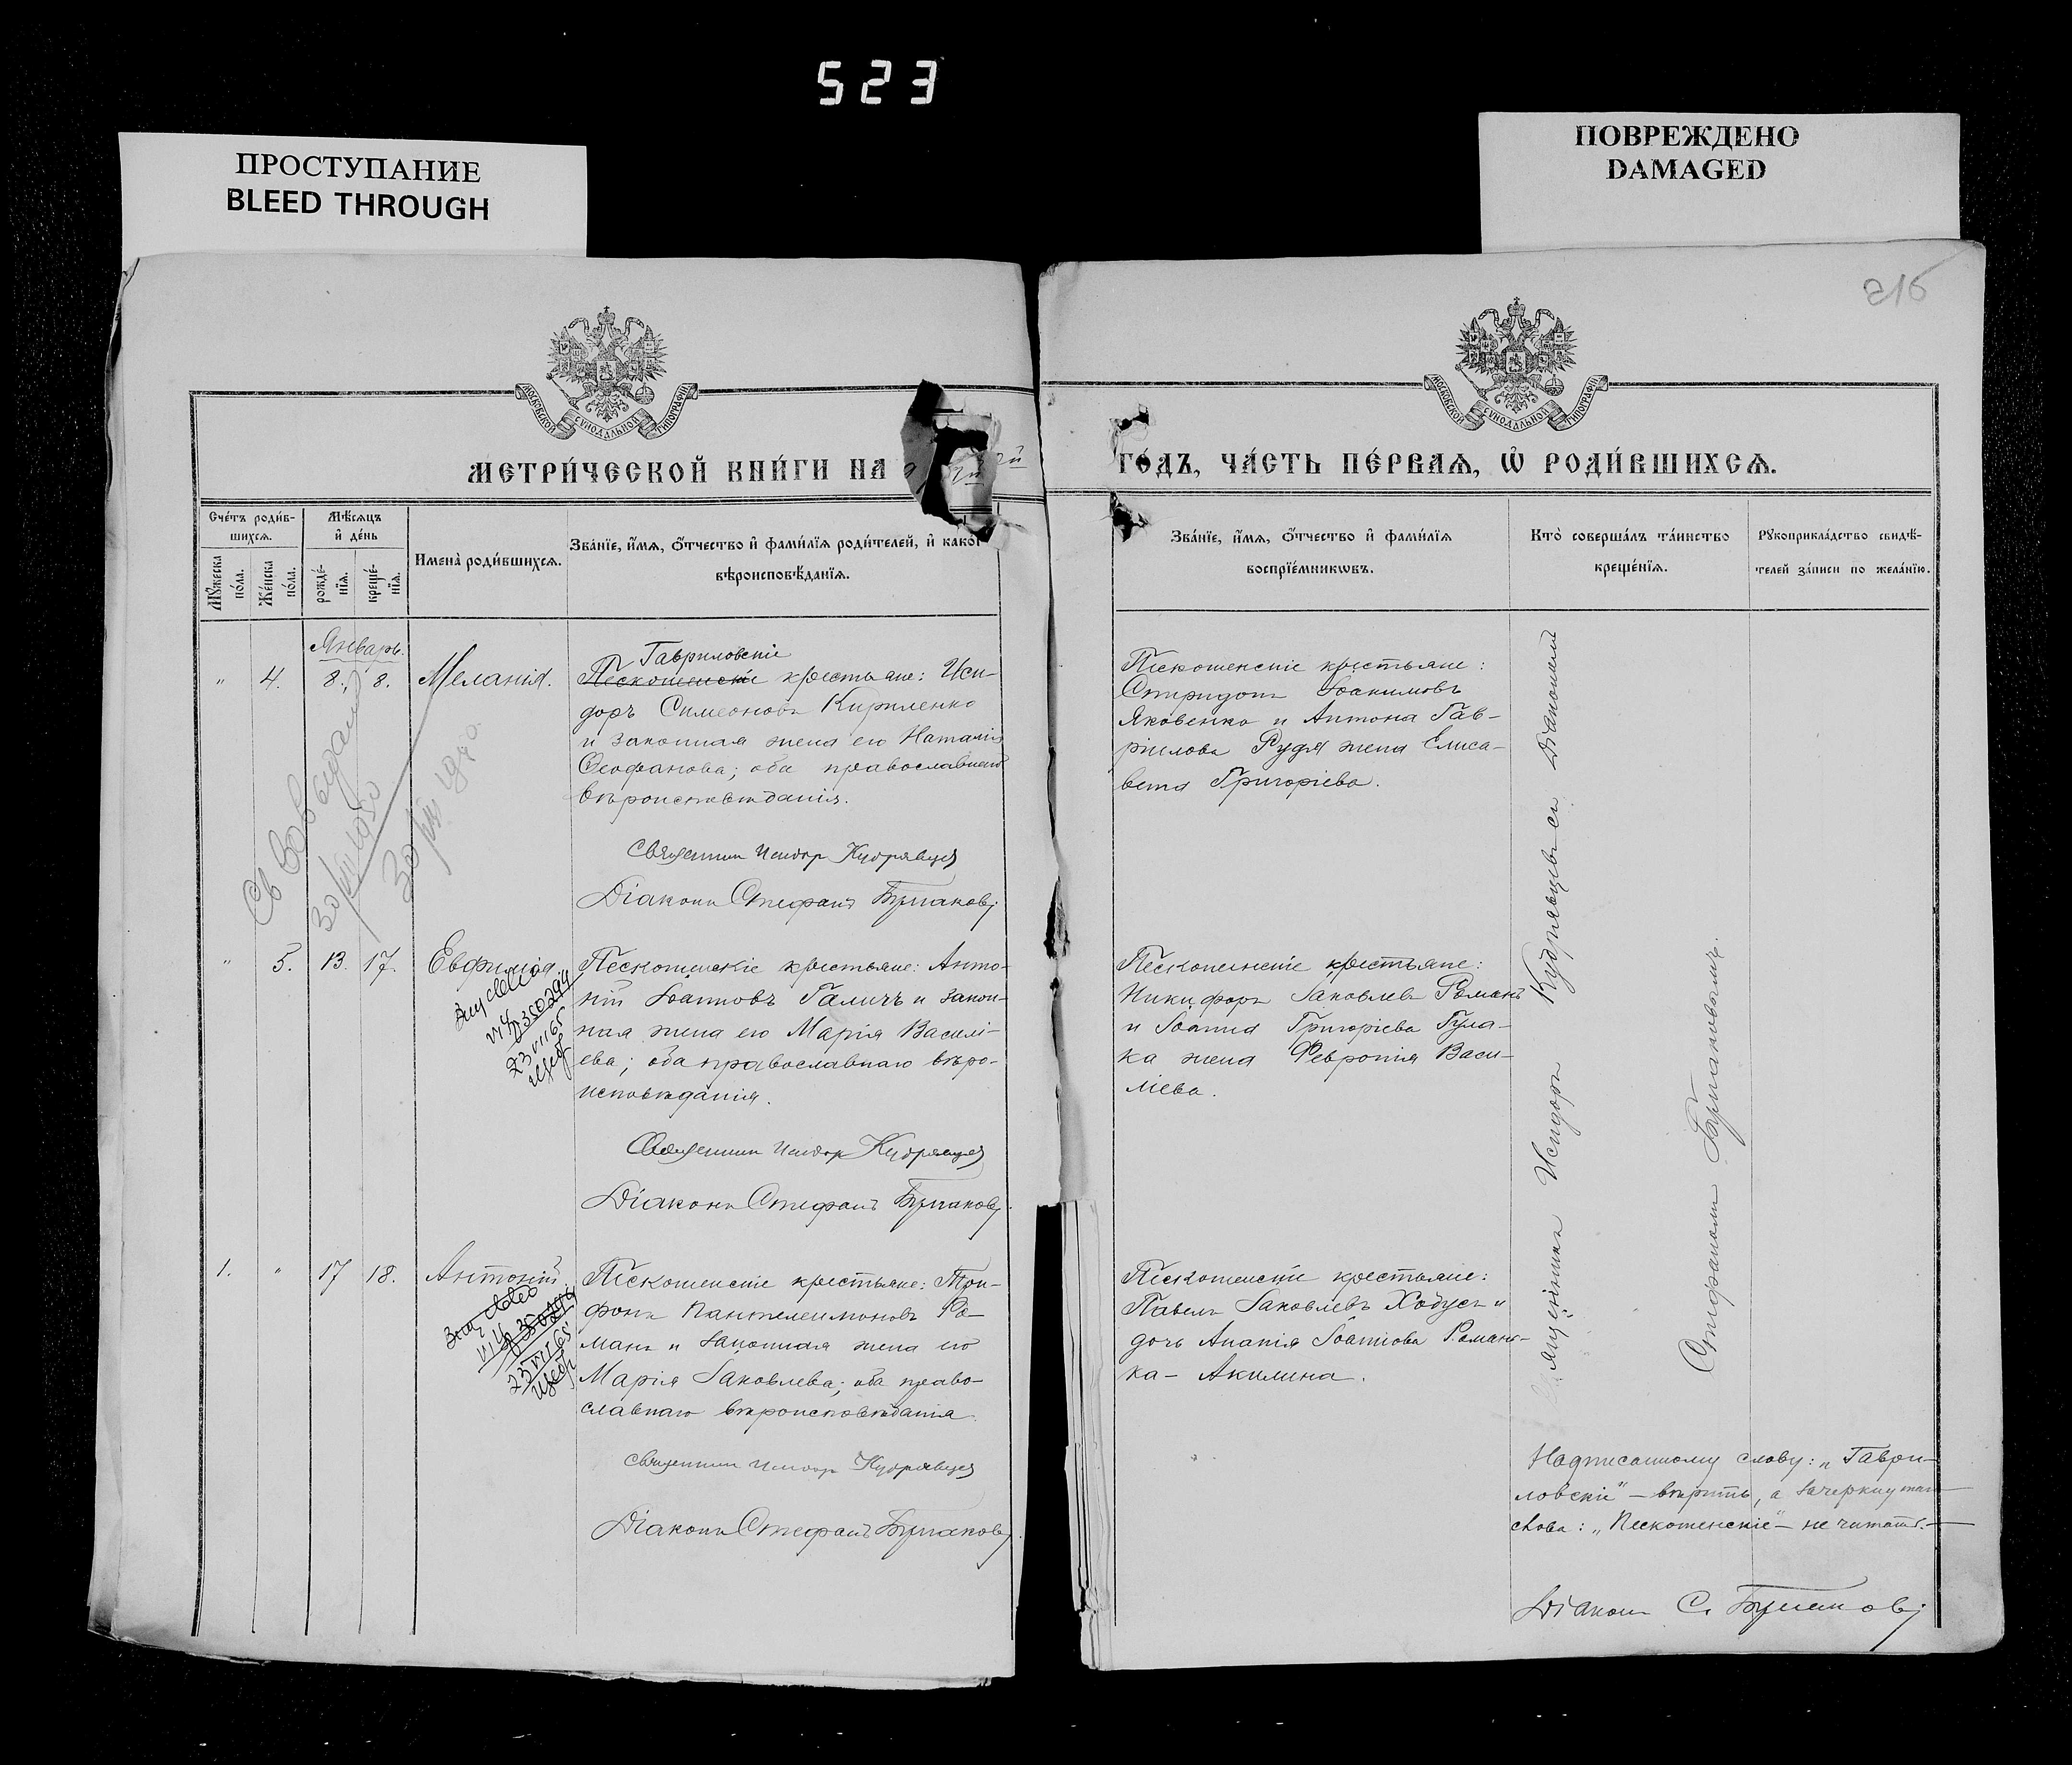 523
ПРОСТУПАНИЕ
BLEED THROUGH
ПОВРЕЖДЕНО
DAMAGED
216
МОСКОВСКОЙ СѴНОДАЛЬНОЙ ТИПОГРАФІИ
МОСКОВСКОЙ СѴНОДАЛЬНОЙ ТИПОГРАФІИ
МЕТРИ́ЧЕСКОЙ КНИ́ГИ НА
ГО́ДЪ, ЧА́СТЬ ПЕ́РВАѦ, Ѡ҆ РОДИ́ВШИХСѦ.
Сче́тъ роди́в-
шихсѧ.
Мꙋ́жеска по́ла.
Же́нска по́ла.
Мѣ́сѧцъ
и҆ де́нь
рожде́-
нїѧ.
креще́-
нїѧ.
Имена̀ роди́вшихсѧ.
Зва́нїе, и҆́мѧ, ѻ҆́тчество и҆ фами́лїѧ роди́телей, и҆ како́г
вѣроисповѣ́данїѧ.
Зва́нїе, и҆́мѧ, ѻ҆́тчество и҆ фами́лїѧ
воспрїе́мникѡвъ.
Кто̀ соверша́лъ та́инство
креще́нїѧ.
Рꙋкоприкла́дство свидѣ́-
телей за́писи по жела́нїю.
Январь.
" 4. 8. 8. Меланія.
Гавриловскіе
Пескошенскіе крестьяне: Иси-
доръ Симеоновъ Кириленко
и законная жена его Наталія
Ѳеофанова; оба православнаго
вѣроисповѣданія.
Священник Исидор Кудрявцев
Діаконъ Стефанъ Бушаковъ
Пескошенскіе крестьяне:
Спиридонъ Іоакимовъ
Яковенко и Антона Гав-
ріилова Рудя жена Елиса-
вета Григоріева.
" 5. 13. 17. Евфимія.
VI 4 0350294
23 VII 65
Пескошенскіе крестьяне: Анто-
ній Іоанновъ Галичъ и закон-
ная жена его Марія Василі-
ева; оба православнаго вѣро-
исповѣданія.
Священник Исидор Кудрявцев
Діаконъ Стефанъ Бушаковъ
Пескошенскіе крестьяне:
Никифоръ Іаковлевъ Романъ
и Іоанна Григоріева Гула-
ка жена Февронія Васи-
ліева.
1. " 17 18. Антоній.
23 VII 65
Пескошенскіе крестьяне: Три-
фонъ Пантелеимоновъ Ро-
манъ и законная жена его
Марія Іаковлева; оба право-
славнаго вѣроисповѣданія.
Священник Исидор Кудрявцев
Діаконъ Стефанъ Бушаковъ
Пескошенскіе крестьяне:
Павелъ Іаковлевъ Ходусъ и
дочь Ананія Іоаннова Романь-
ка - Акилина.
Священникъ Исидоръ Кудрявцевъ съ Діакономъ
Стефаномъ Бушаковымъ.
Надписанному слову: „Гаври-
ловскіе" - вѣрить, а зачеркнутая
слова: „Пескошенскіе" - не читать. -
Діаконъ С. Бушаковъ